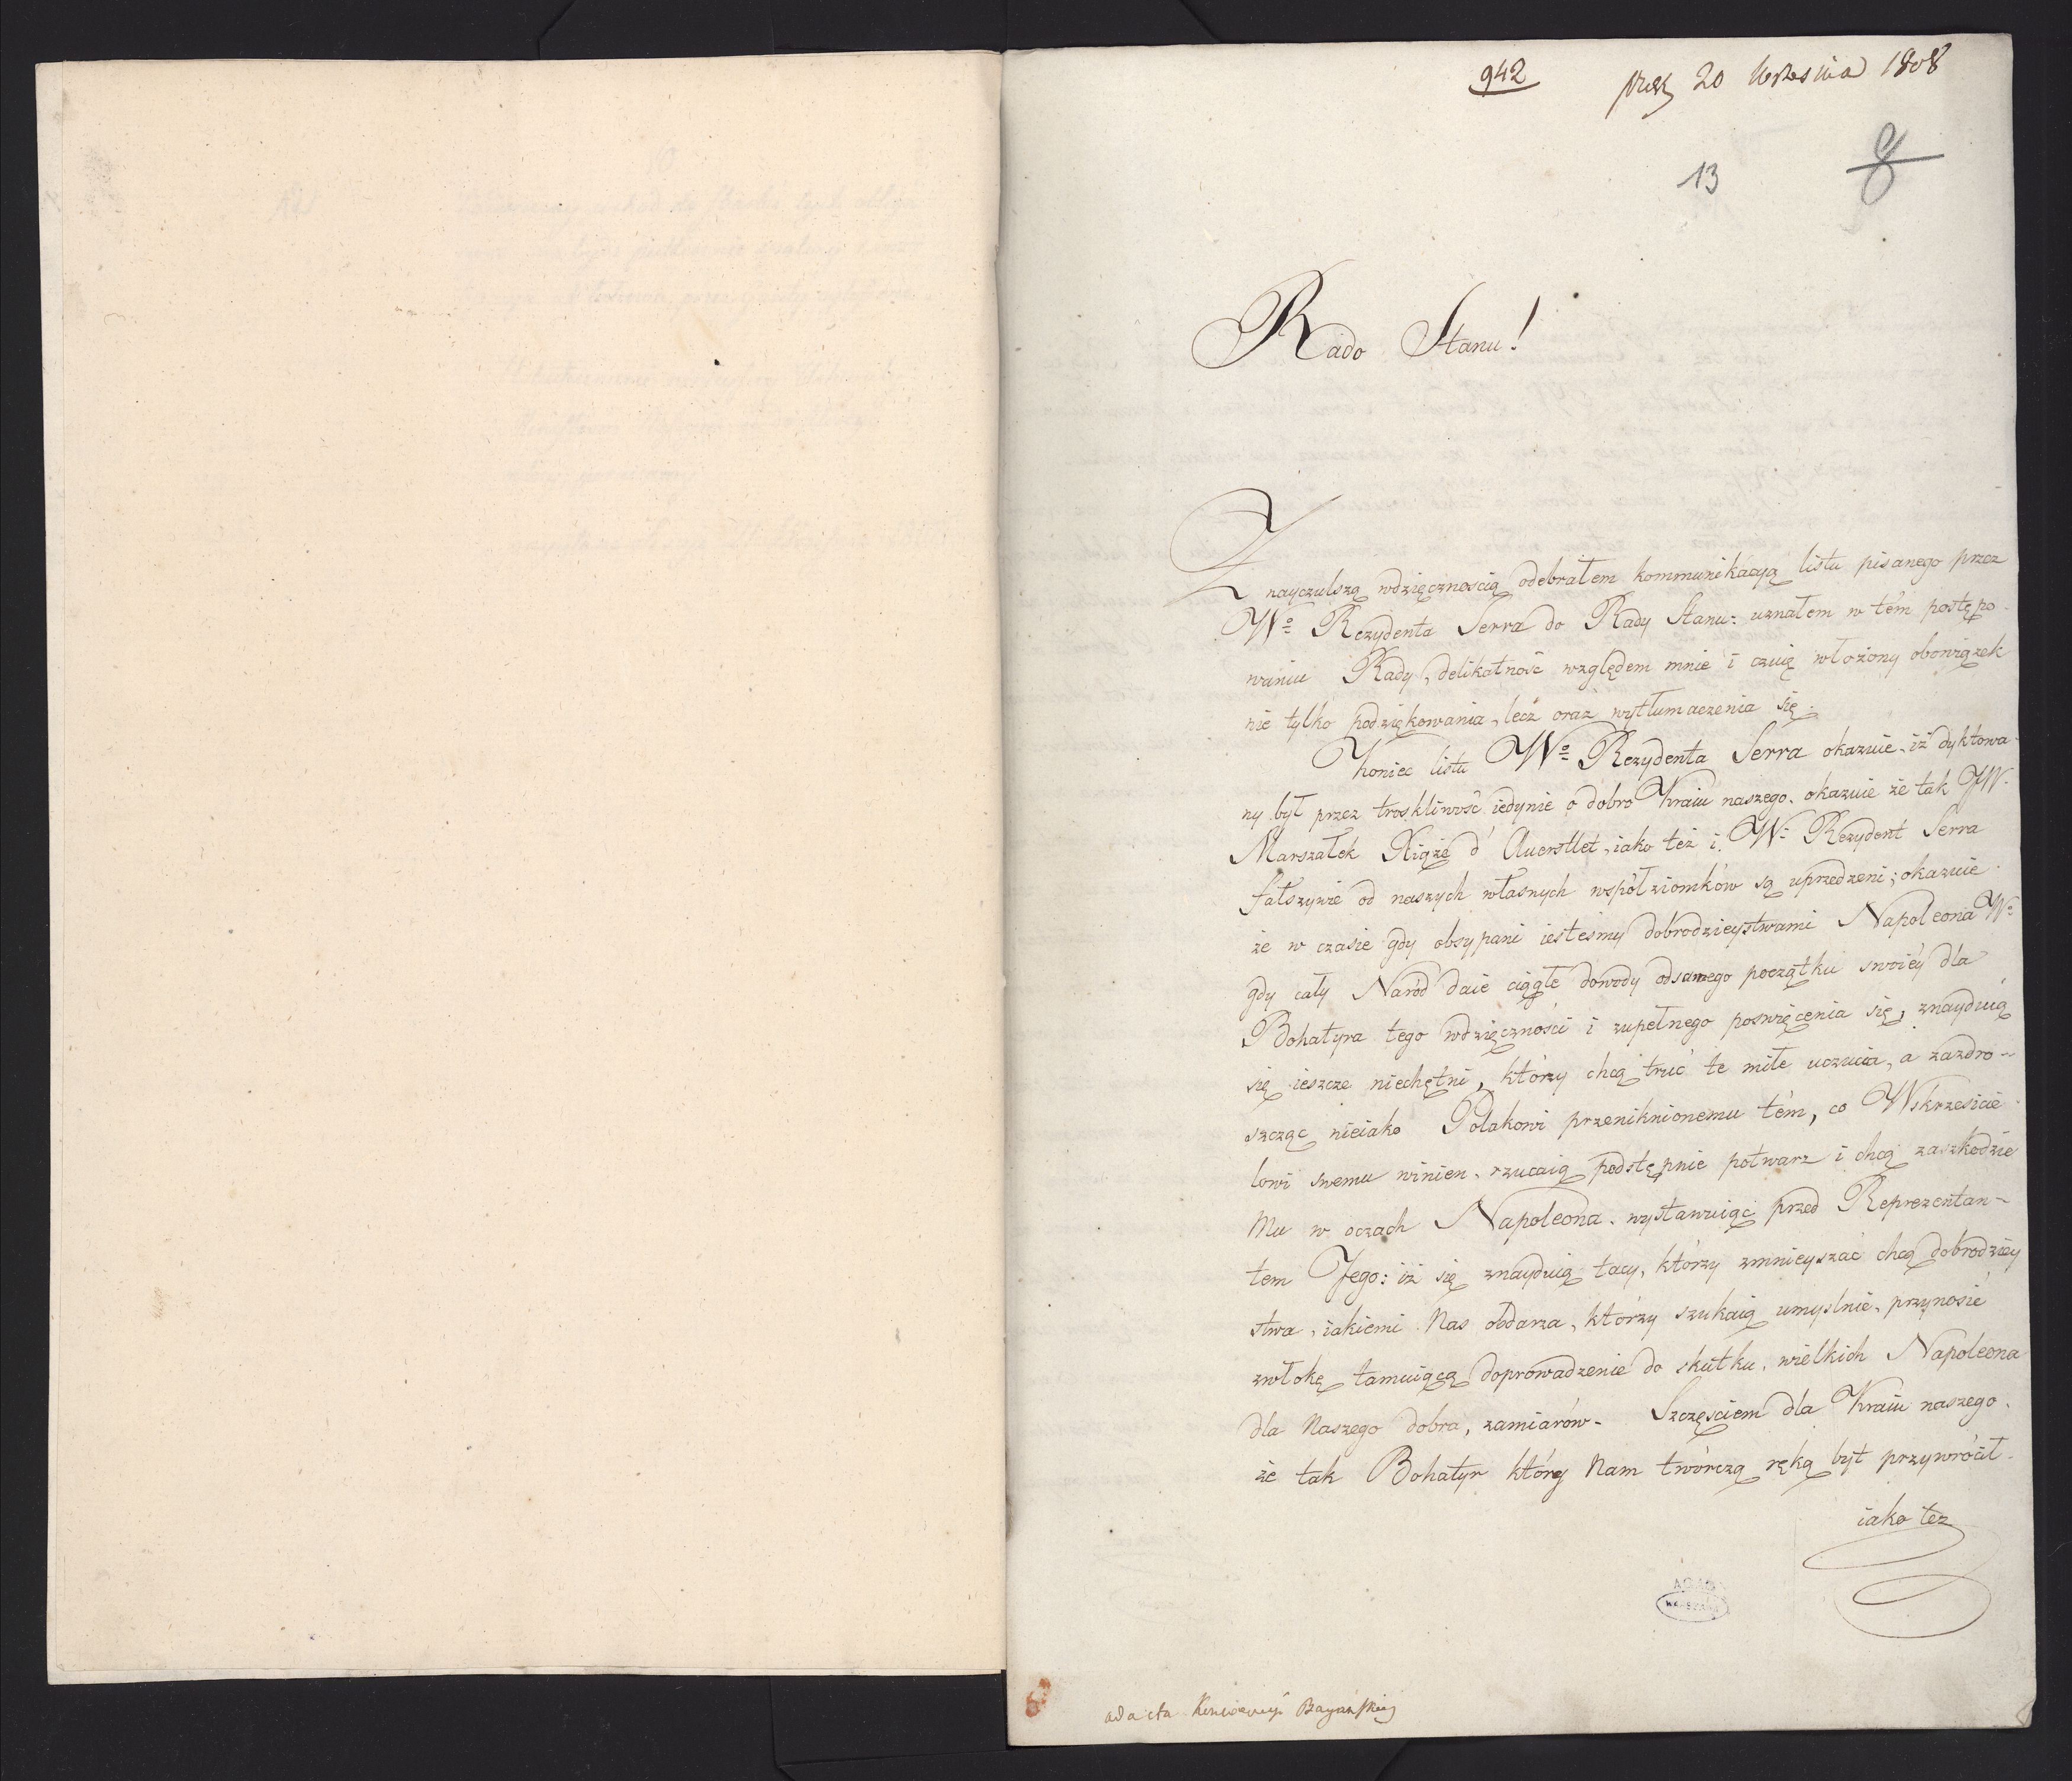 942
20 Września 1808
13
8
Rado Stanu!
Z nayczulszą wdzięcznoscią odebrałem kommunikácyą listu pisanego przez
Wo Rezydenta Serra do Rady Stanu: uznałem w tém postępo-
waniu Rady, delikatność względem mnie i czuię włożony obowiązek
nie tylko podziękowania, lecz oraz wytłumaczenia się.
Koniec listu Wo Rezydenta Serra okazuie, iż dyktowa-
ny był przez troskliwość iedynie o dobro Kraiu naszego. okazuie że tak JW.
Marszałek Xiąże d'Auerstlet, iako też i W. Rezydent Serra
fałszywie od naszych własnych współziomków są uprzedzeni; okazuie
że w czasie gdy obsypani iesteśmy dobrodzieystwami Napoleona Wo
gdy cały Naród daie ciągłe dowody od samego początku swoiéy dla
Bohatyra tego wdzięczności i zupełnego poswięcenia się, znayduią
się ieszcze niechętni, którzy chcą truć te miłe uczucia, a zazdro-
szcząc nieiako Polakowi przeniknionemu tém, co Wskrzesicie-
lowi swemu winien, rzucaią podstępnie potwarz i chcą zaszkodzić
Mu w oczach Napoleona, wystawuiąc przed Reprezentan-
tem Jego: iż się znayduią tacy, którzy zmnieyszać chcą dobrodziey
stwa, iakiemi Nas obdarza, którzy szukaią umyslnie, przynosić
zwłokę tamuiącą doprowadzenie do skutku, wielkich Napoleona
dla Naszego dobra, zamiarów. Szczęściem dla Kraiu naszego,
że tak Bohatyr który Nam twórczą ręką byt przywrócił,
iako też
AGAD
WARSZAWA
ad acta Konwencyi Bayońskiej